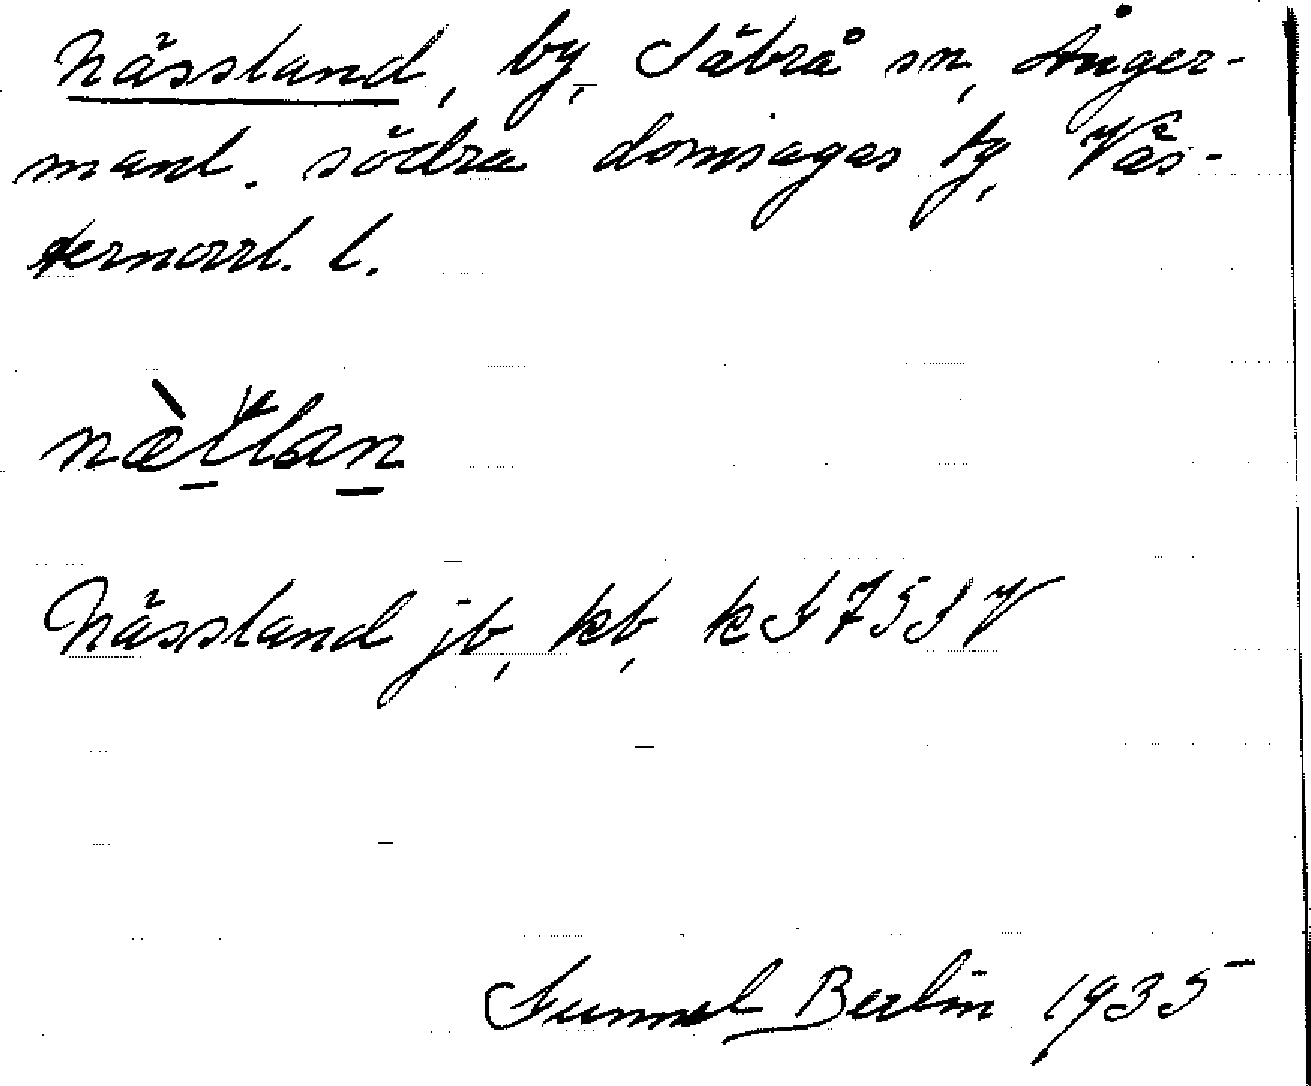 Nässland, by, Säbrå sn, Ånger-
manl. södra domsagas tg, Väs-
ternorrl. l.
Nässland jb, kb, k
Gunnel Berlin 1935